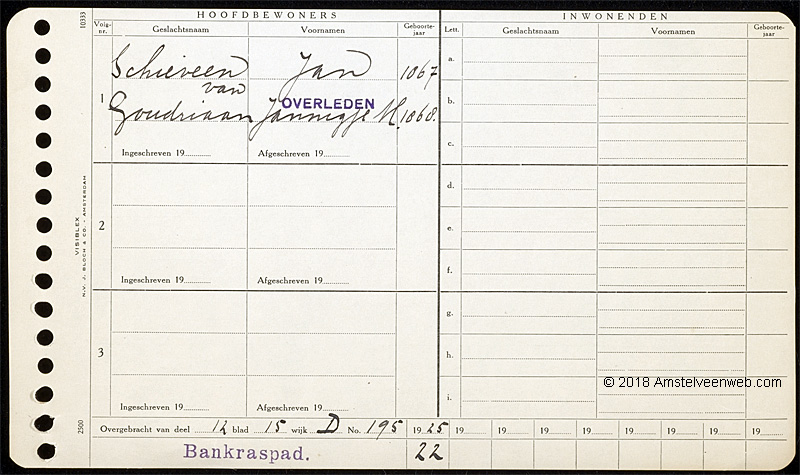 HOOFDBEWONERS
INWONENDEN
10333
Volg-nr.
Geslachtsnaam
Voornamen
Geboorte-jaar
Lett.
Geslachtsnaam
Voornamen
Geboorte-jaar
Schieveen
Jan
1867
van
1
OVERLEDEN
Goudriaan
Jannigje M.
1868.
Ingeschreven 19
Afgeschreven 19
2
Ingeschreven 19
Afgeschreven 19
3
Ingeschreven 19
Afgeschreven 19
a.
b.
c.
d.
e.
f.
g.
h.
i.
VISIBLEX
N.V. J. BLOCH & CO. - AMSTERDAM
2500
© 2018 Amstelveenweb.com
Overgebracht van deel 12 blad 15 wijk D No. 195 1925 19 19 19 19 19 19 19 19
Bankraspad.
22